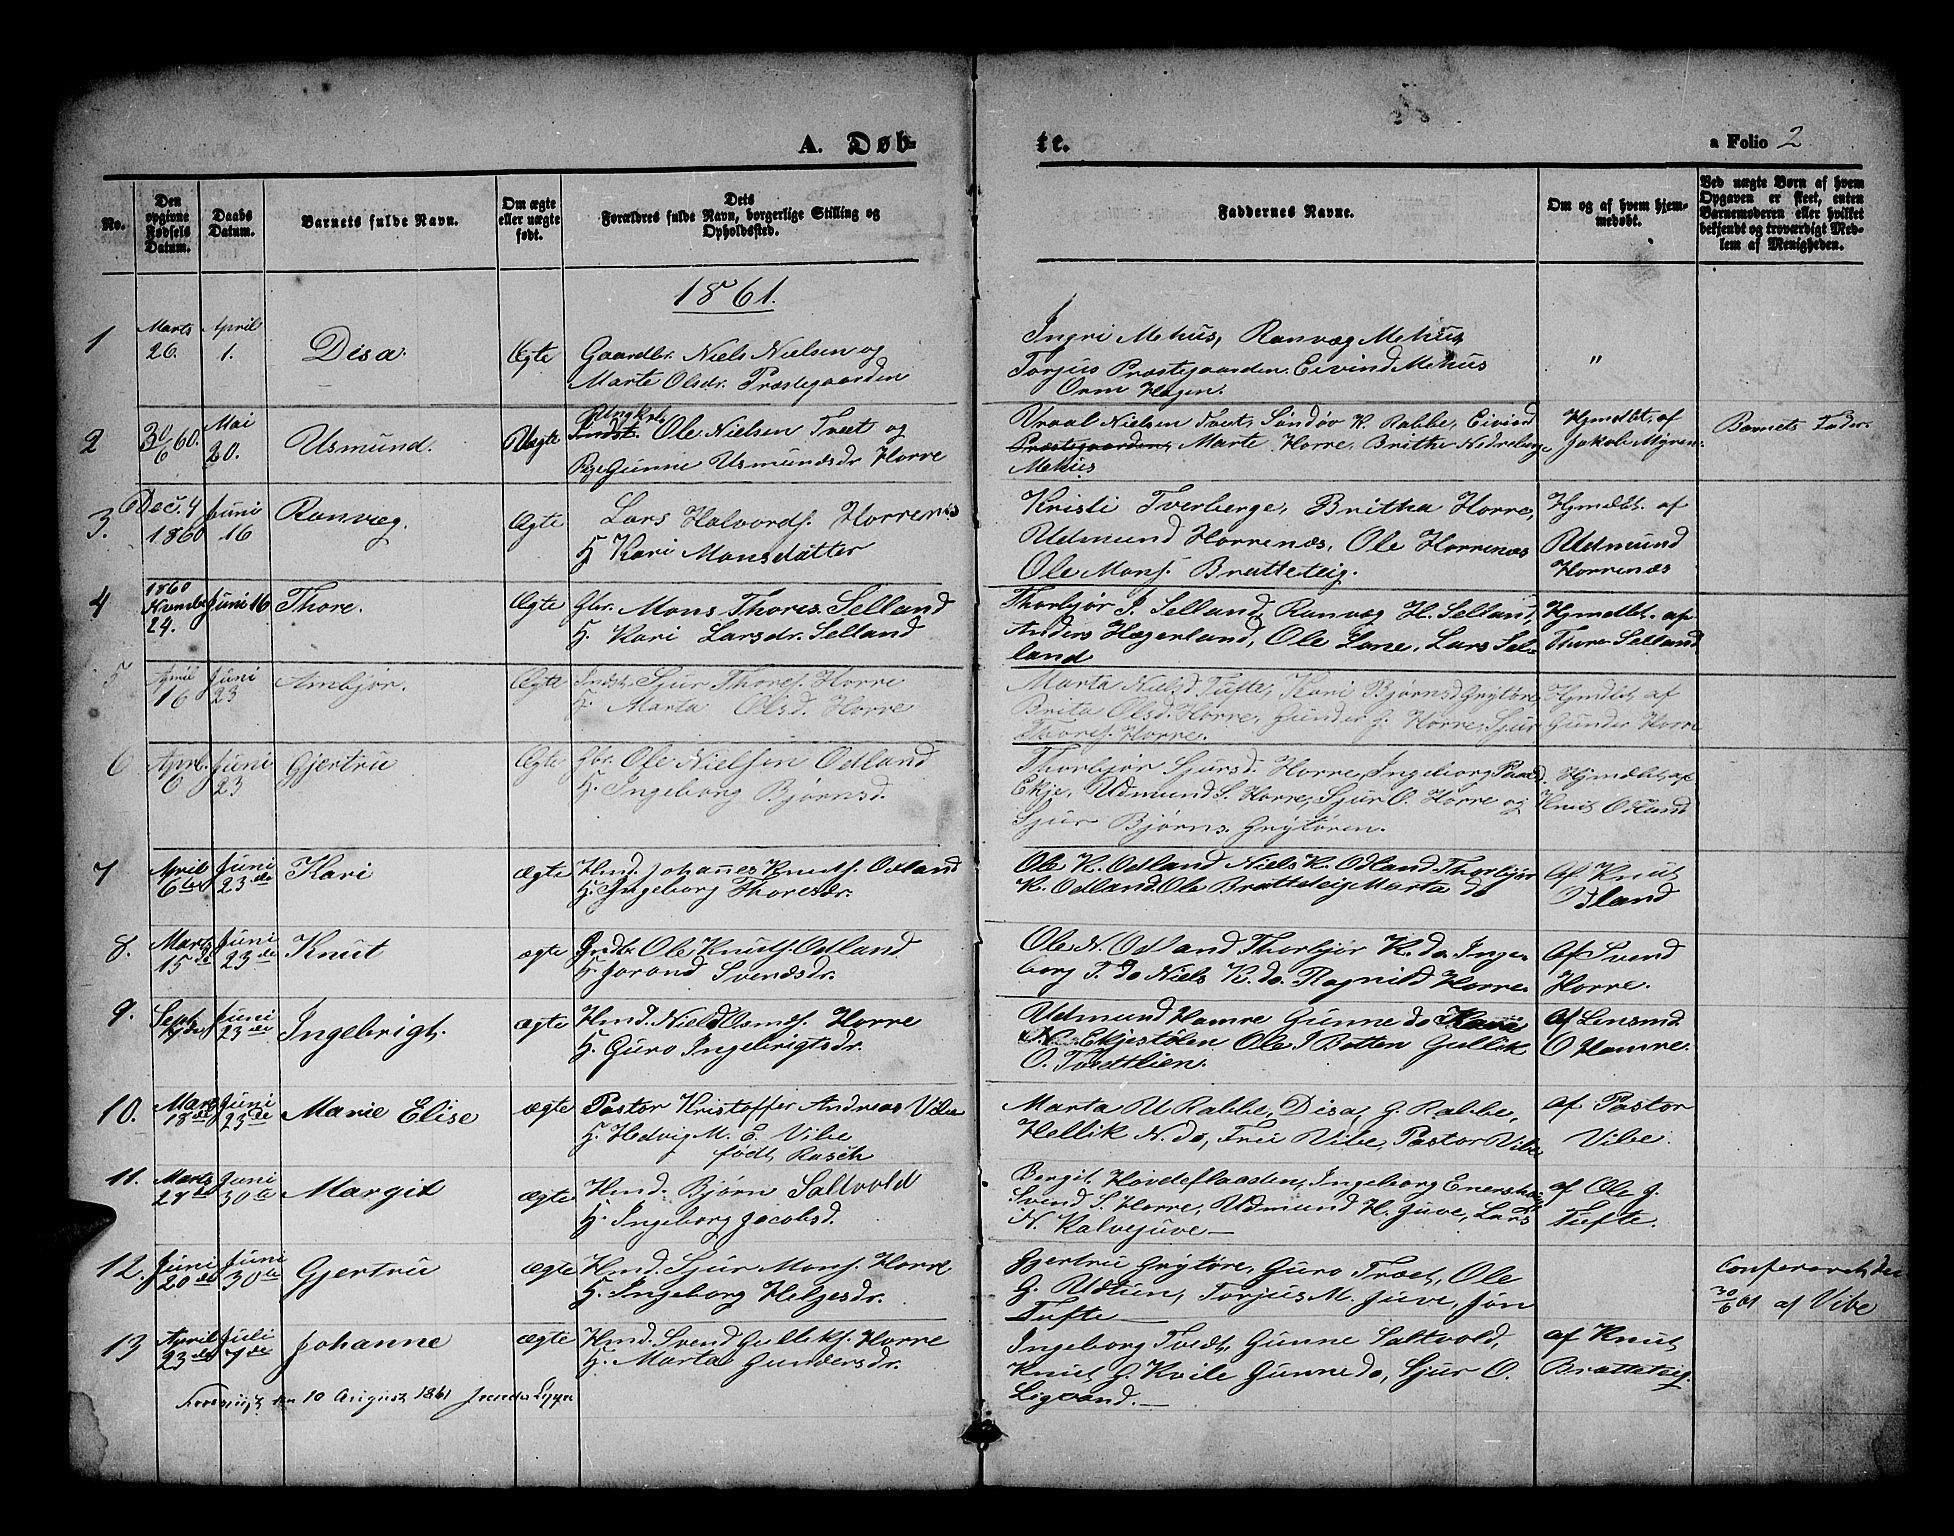 A. Døb-
te.
a Folio 2
No.
Den opgivne Fødsels Datum.
Daabs Datum.
Barnets fulde Navn.
Om ægte eller uægte født.
Dets Forældres fulde Navn, borgerlige Stilling og Opholdssted.
Faddernes Navne.
Om og af hvem hjemmedøbt.
Ved uægte Børn af hvem Opgaven er skeet, enten Barnemoderen eller hvilket bekjendt og troværdigt Medlem af Menigheden.
1861.
1 Marts 26. April 1. Disa. Ægte
Gaardbr. Niels Nielsen og
Marte Olsdr. Præstegaarden
Ingri Mehus, Ranvæg Mehus
Torjus Præstegaarden. Eivind Mehus
Orm Hagen.
"
2 30/6 60. Mai 20. Usmund. Uægte
Ungkrl. Ole Nielsen Tvet og
Pige Gunne Usmundsdr Horre
Vraal Nielsen Tvet, Søndøv K. Rabbe, Eivind
Præstegaarden, Marte Horre, Brithe Nedreberge
Mehus
Hjmdbt. af
Jakob Myren
Barnets Fader.
3. Dec. 4 1860 Juni 16 Ranvæg. Ægte
Lars Halvords. Horrenæs
H Kari Monsdatter
Kristi Tverberge, Britha Horre,
Udmund Horrenæs, Ole Horrenæs
Ole Mons. Bratteteig.
Hjmdbt. af
Udmund
Horrenæs
4 1860 24. Juni 16 Thore. Ægte
Gbr. Mons Thores. Selland
H. Kari Larsdr. Selland
Thorbjør J. Selland, Ranvæg H. Selland,
Anders Hægerland, Ole Lone, Lars Sel-
land
Hjmdbt. af
Thore Selland
5 April 16 Juni 23 Ambjør. Ægte
Indst. Sjur Thores. Horre
H. Marta Olsd. Horre
Marta Nielsd Tufte, Kari Bjørnsd Grytøre
Brita Olsd. Horre, Gunder G. Horre, Sjur
Thores. Horre.
Hjmdbt af
Gunder Horre
6 April. 6 Juni 23 Gjertru Ægte
Gbr. Ole Nielsen Odland
H. Ingeborg Bjørnsd.
Thorbjør Sjursd. Horre, Ingeborg Paasd.
Ekje, Udmund S. Horre, Sjur O. Horre og
Sjur Bjørns. Grytøren.
Hjmdbt. af
Knut Odland
7 April 6te Juni 23de Kari ægte
Hmd. Johannes Knuts. Odland
H. Ingeborg Thoresdr.
Ole K. Odland Niels K. Odland Thorbjør
K. Odland Ole Bratteteig Marta do
af Knut
Odland
8. Marts 15de Juni 23de Knut ægte
Ole Knuts. Odland
H. Jorand Svendsdr.
Ole N. Odland Thorbjør K. do. Inge-
borg T. do Niels K. do. Ragnild Horre.
af Svend
Horre.
9. Sept. Juni 23de Ingebrigt. ægte
Hmd. Niels Osmds. Horre
H. Guro Ingebrigtsdr.
Udmund Hamre Gunne do Kari
N. Ekjestølen Ole J Botten Gullik
O. Tvedtlien.
af Lensmd.
O Hamre.
10. Marts 18de Juni 23de Marie Elise ægte
Pastor Kristoffer Andreas Vibe
H. Hedvig M. E. Vibe
født Rasch
Marta U Rabbe, Disa G. Rabbe,
Hellik N. do, Fru Vibe, Pastor Vibe
af Pastor
Vibe.
11. Marts 27de Juni 30te Margit ægte
Hmd. Bjørn Saltvold
H. Ingeborg Jacobsd.
Bergit Hovdeflaaden, Ingeborg
Svend S. Horre, Udmund H. Juve, Lars
N. Kalvejuve—
af Ole J.
Tufte.
12. Juni 20de Juni 30te Gjertru ægte
Hmd. Sjur Mons. Horre
H. Ingeborg Helgesdr.
Gjertru Grytøre, Guro Træt, Ole
G. Udtun, Torjus M. Juve, Jon
Tufte—
Confereret den
30/6 61 af Vibe
13 April 23de Juli 7de Johanne ægte
Hmd. Svend Gulliks. Horre
H. Marta Gundersdr.
Ingeborg Tvedt, Gunne Saltvold,
Knut G. Kvile Gunne do, Sjur O.
Ligvand.—
af Knut
Bratteteig
den 10 August 1861